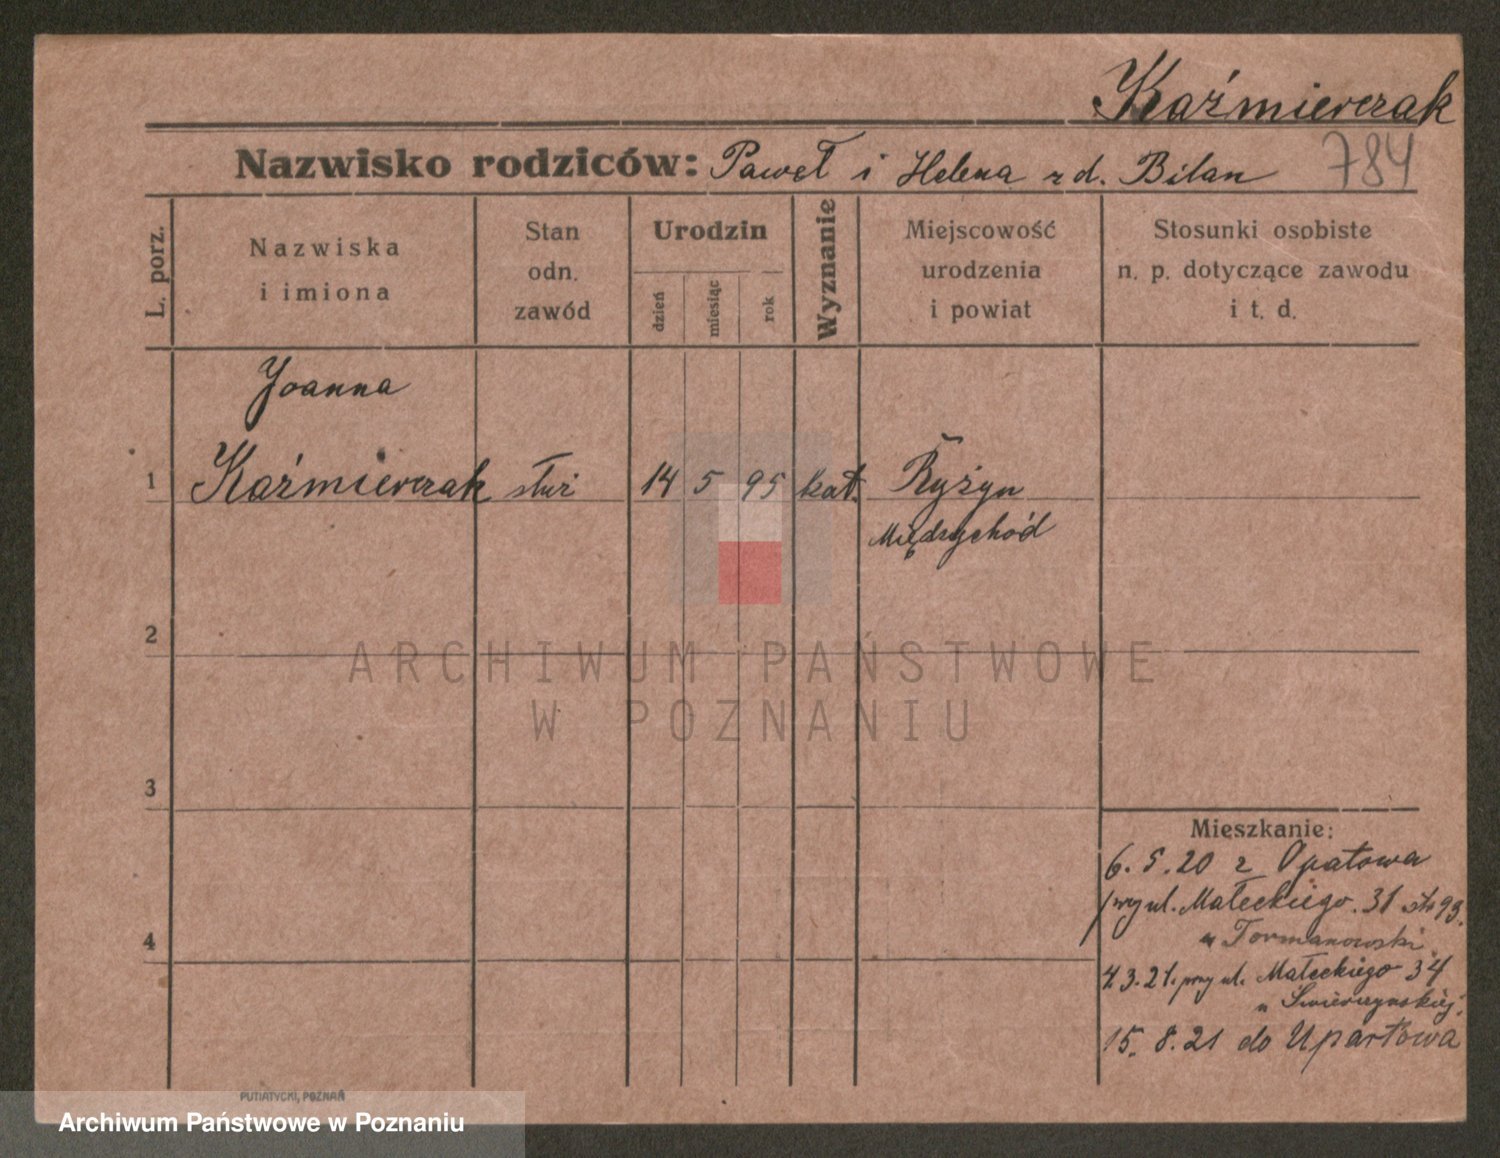 Kaźmierczak
Nazwisko rodziców: Paweł i Helena z d. Bilan
784
L. porz.
Nazwiska
i imiona
Stan
odn.
zawód
Urodzin
dzień
miesiąc
rok
Wyznanie
Miejscowość
urodzenia
i powiat
Stosunki osobiste
n. p. dotyczące zawodu
i t. d.
Joanna
1 Kaźmierczak służ 14 5 95 kat. Ryżyn
Międzychód
2
ARCHIWUM PAŃSTWOWE
W POZNANIU
3
Mieszkanie:
6. 5. 20 z Opatowa
przy ul. Małeckiego. 31 93.
u Tormanowski
4.3.21. przy ul. Małeckiego 34
u Świerczyńskiej.
15. 8. 21 do Upartowa
4
PUTIATYCKI, POZNAŃ
Archiwum Państwowe w Poznaniu